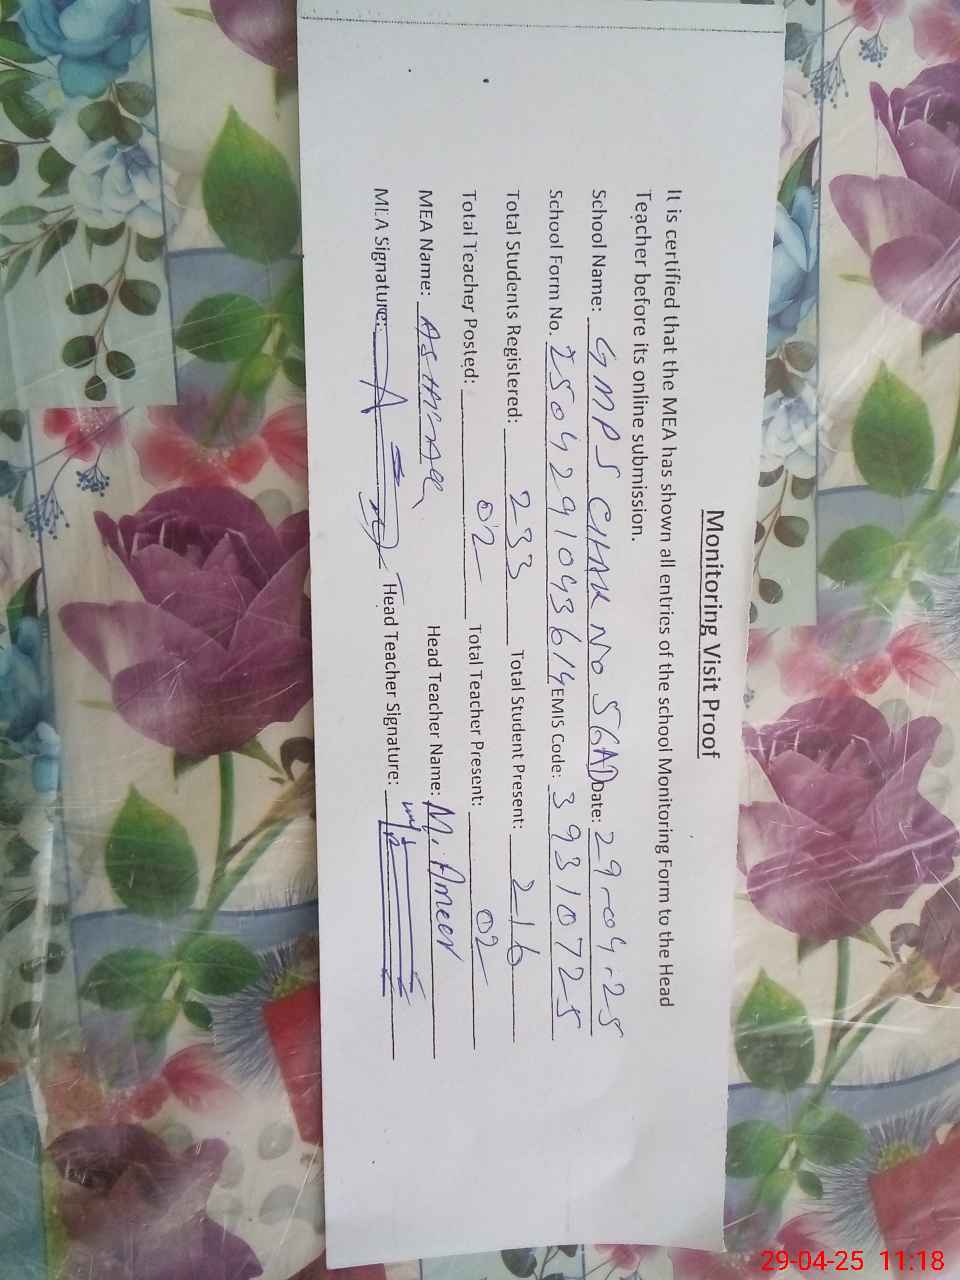 Monitoring Visit Proof
It is certified that the MEA has shown all entries of the school Monitoring Form to the Head
Teacher before its online submission.
School Name: GMPS CHAK NO 56AD Date: 29-04-25
School Form No. 2504291043614 EMIS Code: 39310725
Total Students Registered: 233 Total Student Present: 216
Total Teacher Posted: 02 Total Teacher Present: 02
MEA Name: Head Teacher Name: M. Ameer
MEA Signature: Head Teacher Signature:
29-04-25 11:18